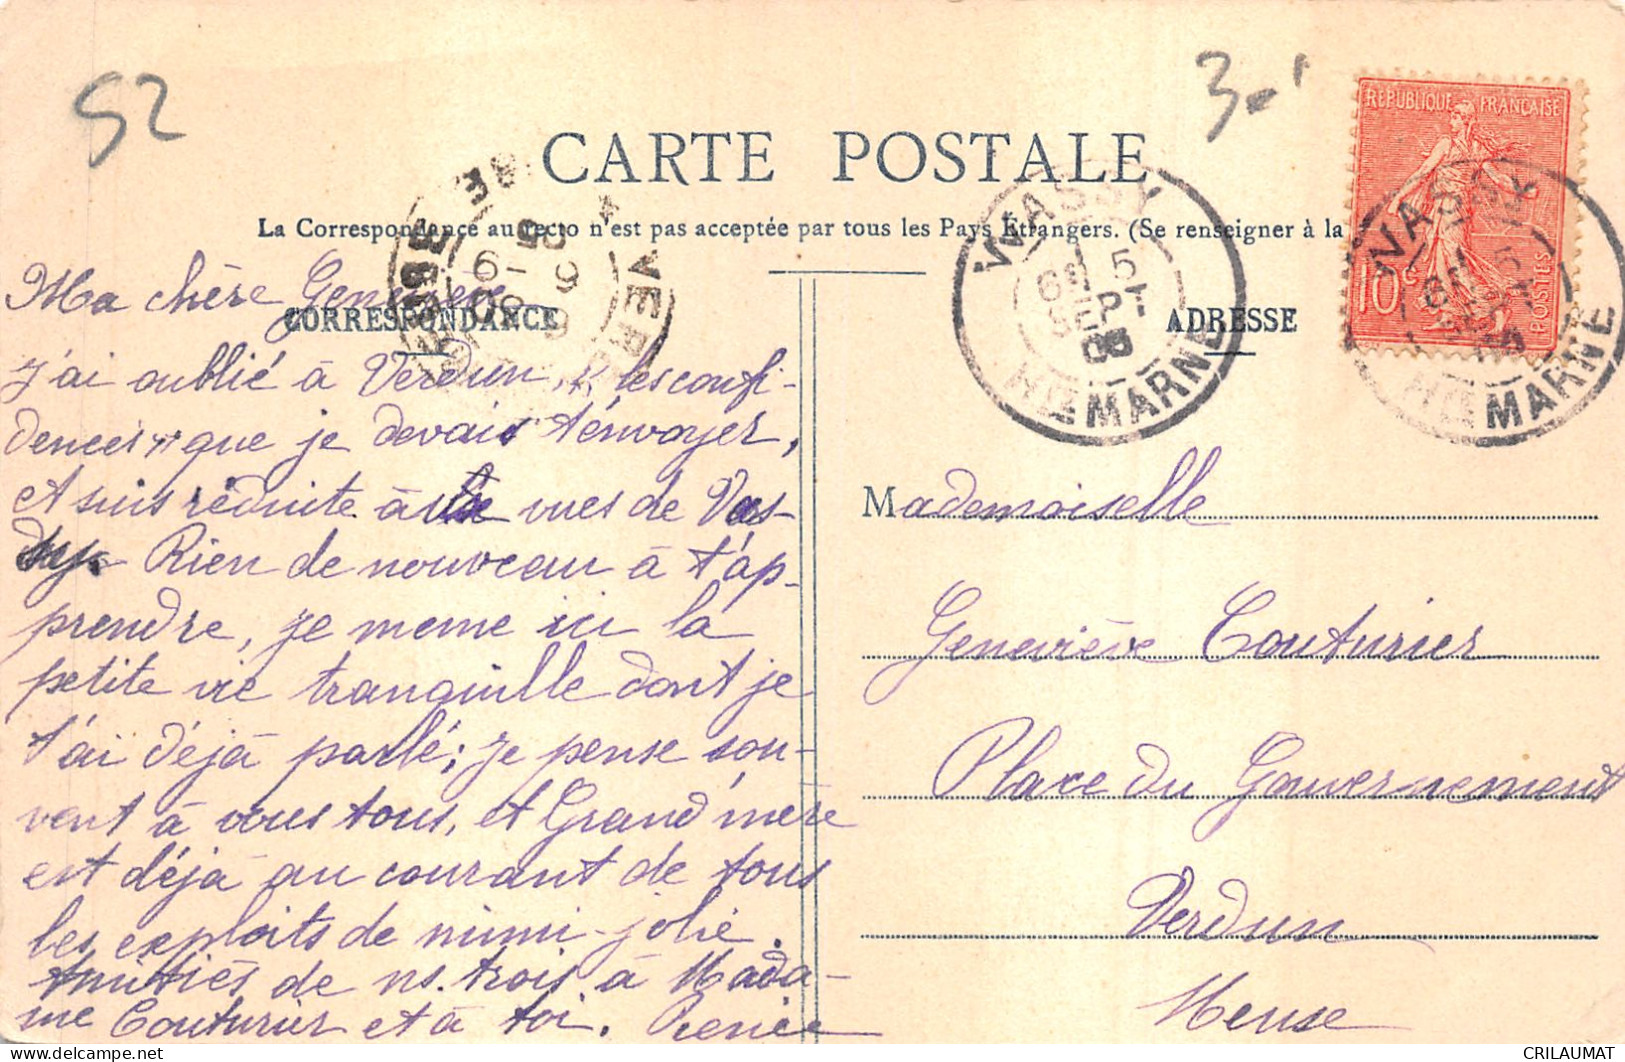 52
3-'
CARTE POSTALE
La Correspondance au recto n'est pas acceptée par tous les Pays Étrangers. (Se renseigner à la
CORRESPONDANCE
ADRESSE
REPUBLIQUE FRANÇAISE
10c
POSTES
WASSY
5
SEPT
06
HTE MARNE
WASSY
5
HTE MARNE
Ma chère Geneviève
J'ai oublié à Verdun, "les confi-
dences" que je devais t'envoyer,
et suis réduite à vues de Vas-
sy. Rien de nouveau à t'ap-
prendre, je mème ici la
petite vie tranquille dont je
t'ai déjà parlé; je pense sou-
vent à vous tous, et Grand'mère
est déjà au courant de tous
les exploits de mimi-jolie.
Amitiés de ns. trois à Mada-
me Couturier et à toi. Renée
Mademoiselle
Geneviève Couturier
Place du Gouvernement
Verdun
Meuse
CRILAUMAT